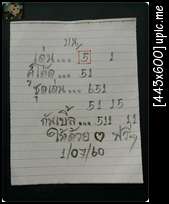 เด่น... 5 1
คู่โต๊ด... 51
ชุดเด่น... 651
51 15
กันเบิ้ล... 511 11
ให้ด้วย ♡ ฟรีๆ
1/07/60
[443x600] upic.me